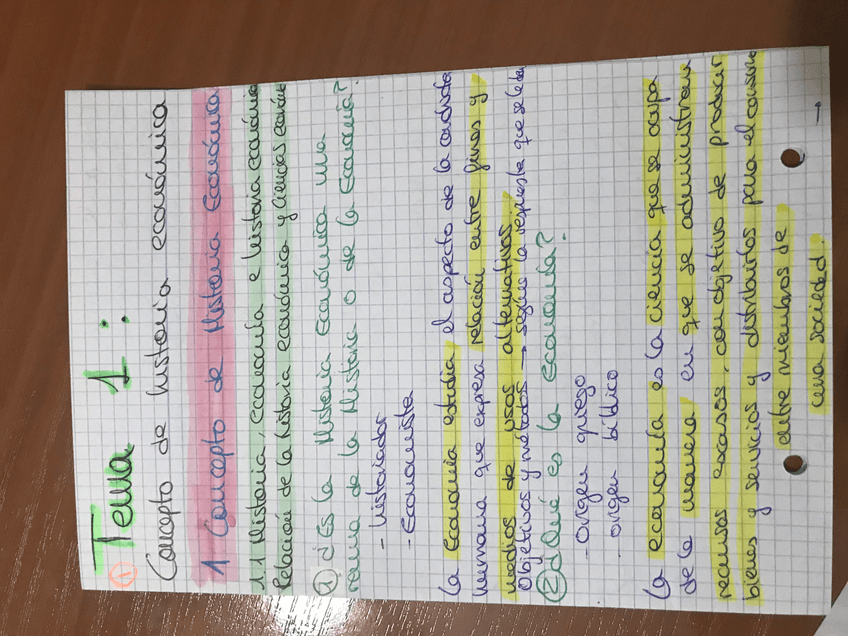 ① Tema 1:
Concepto de historia económica
1 Concepto de Historia Económica
1.1 Historia, economía e historia económica
Relación de la historia económica y ciencias económic
① ¿Es la Historia Económica una
rama de la Historia o de la Economía?
- Historiador
- Economista
La Economía estudia el aspecto de la conducta
humana que expresa relación entre fines y
medios de usos alternativos.
Objetivos y métodos → según la respuesta que se le da
② ¿Qué es la Economía?
- Origen griego
- origen bíblico
La economía es la ciencia que se ocupa
de la manera en que se administran
recursos escasos, con objetivo de producir
bienes y servicios y distribuirlos para el consumo
entre miembros de
una sociedad. →